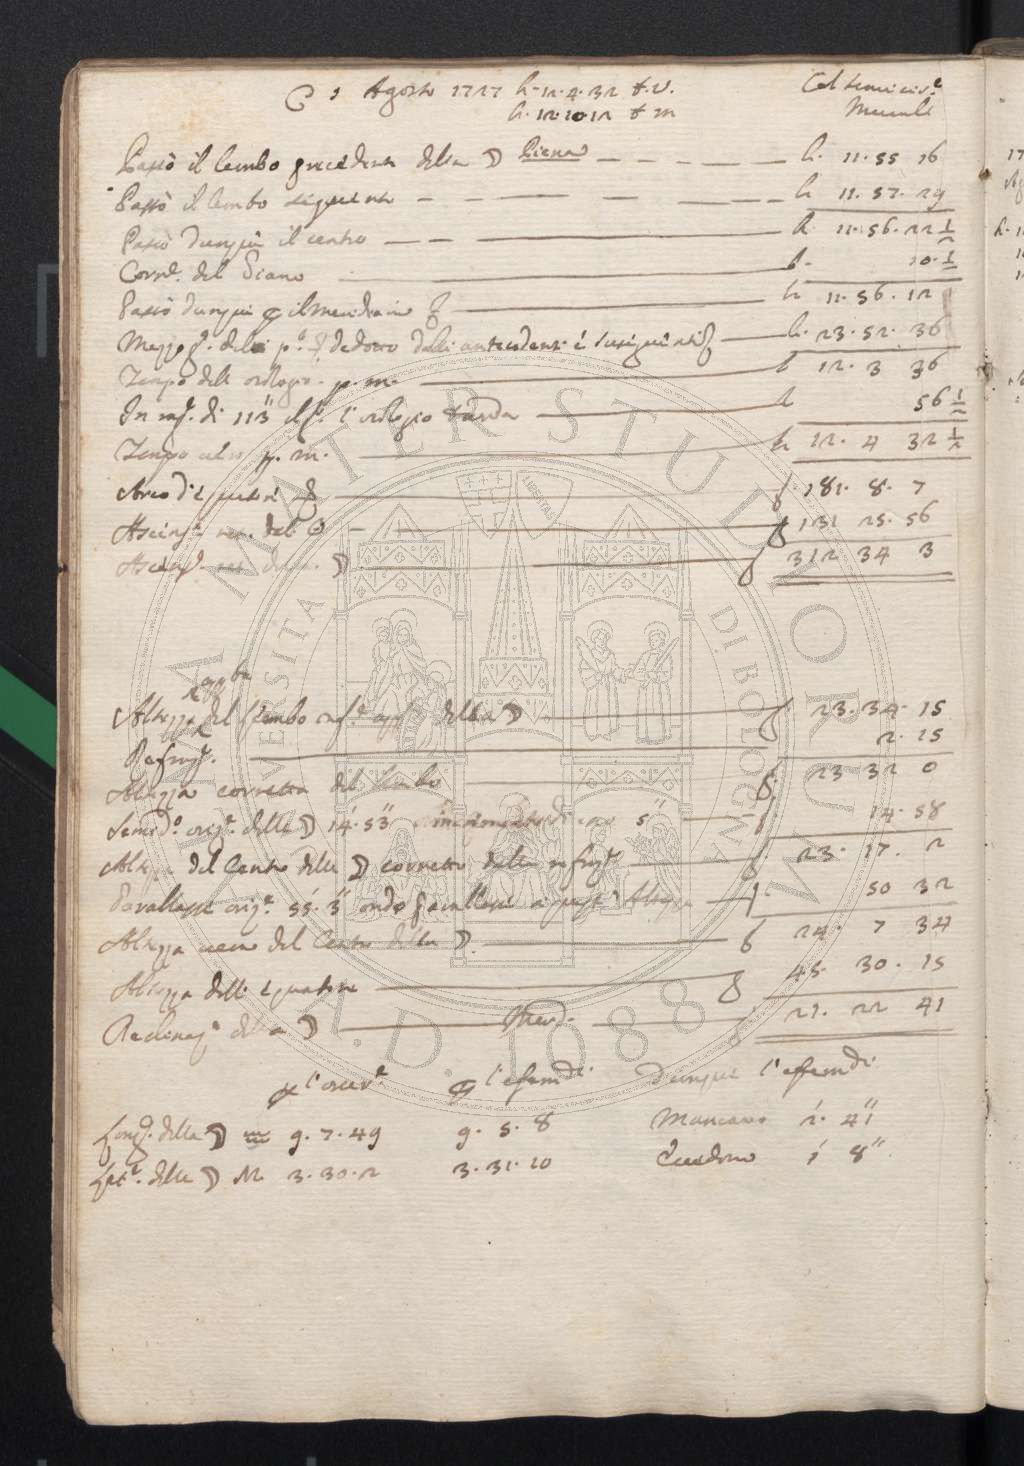 ☾ 1 Agosto 1727 h. 12. 4. 32 t. v. Col semicirc.e
h. 12. 10. 12 t. m Murale
Passò il lembo precedente della ☽ Piena h. 11. 55 16
Passò il lembo seguente h 11. 57. 29
Passò dunque il centro h. 11. 56. 22 1/2
Corre. del Piano h. 10. 1/2
Passò dunque il Meridiano h 11. 56. 12
Mezzo g. del p.o dedotto dalli antecedenti é susseguenti h. 23. 52. 36
Tempo dell orologio. p. m. h 12. 3 36
In rag. di 113" l'orologio tarda h 56 1/2
Tempo vero p. m. h 12. 4 32 1/2
Arco d'equatore 181. 8. 7
Ascens. ret. del ☉ 131 25. 56
Ascens. ret. della ☽ 312 34 3
Altezza del lembo inf.e app. della ☽ 23. 34. 15
Refraz. 2. 15
Altezza corretta del lembo 23 32 0
Semid.o oriz. della ☽ 14'. 53" 5" 14. 58
Altezza del Centro della ☽ corretta dalla refraz. 23. 17. 2
Parallasse oriz. 55'. 3" onde Parallasse a quest' Altezza 50 32
Altezza vera del Centro della ☽ 24. 7 34
Altezza dell' equatore 45. 30. 15
Declinaz. della ☽ Merid. 21. 22 41
l'osserv.e l'efemdi dunque l'efemdi
Long. della ☽ ♒ 9. 7. 49 9. 5. 8 Mancano 2'. 41"
Lat. della ☽ M. 3. 30. 2 3. 31. 10 Eccedono 1' 8".
ALMA MATER STUDIORUM
A.D. 1088
UNIVERSITÀ DI BOLOGNA
LIBERTAS